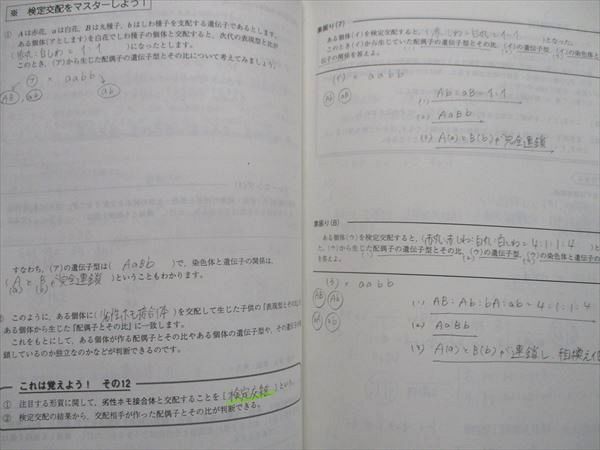 ※ 検定交配をマスターしよう！
① Aは赤花、aは白花、Bは丸種子、bはしわ種子を支配する遺伝子であるとします。
ある個体(アとします)を白花でしわ種子の個体と交配すると、次代の表現型と比が
(赤丸:白しわ = 1:1)になったとします。
このとき、(ア)から生じた配偶子の遺伝子型とその比について考えてみましょう。
㋐ × aabb
AB, ab
ab
すなわち、(ア)の遺伝子型は( AaBb )で、染色体と遺伝子の関係は、
(AとBが完全連鎖)ということもわかります。
(a) (b)
このように、ある個体に(劣性ホモ接合体)を交配して生じた子供の「表現型とその比」
ある個体から生じた「配偶子とその比」に一致します。
これをもとにして、ある個体が作る配偶子とその比やある個体の遺伝子型や、その遺伝子
鎖しているのか独立なのかなどが判断できるのです。
これは覚えよう！ その12
① 注目する形質に関して、劣性ホモ接合体と交配することを(検定交雑)という。
② 検定交配の結果から、交配相手が作った配偶子とその比が判断できる。
素振り(7)
ある個体(イ)を検定交配すると、(赤しわ:白丸 = 1:1)となった。
このとき(イ)から生じていた配偶子の遺伝子型とその比、(イ)の遺伝子型、(イ)の染色体と
伝子の関係を答えよ。
(イ) × aabb
Ab aB
(1) Ab:aB = 1:1
(2) AaBb
(3) A(a)とB(b)が完全連鎖
素振り(8)
ある個体(ウ)を検定交配すると、(赤丸:赤しわ:白丸:白しわ = 4:1:1:4)
と、(ウ)から生じた配偶子の遺伝子型とその比、(ウ)の遺伝子型、(ウ)の染色体と遺伝子の
を答えよ。
(ウ) × aabb
AB Ab
aB ab
(1) AB:Ab:bA:ab = 4:1:1:4
(2) AaBb
(3) A(a)とB(b)が連鎖し、組換え